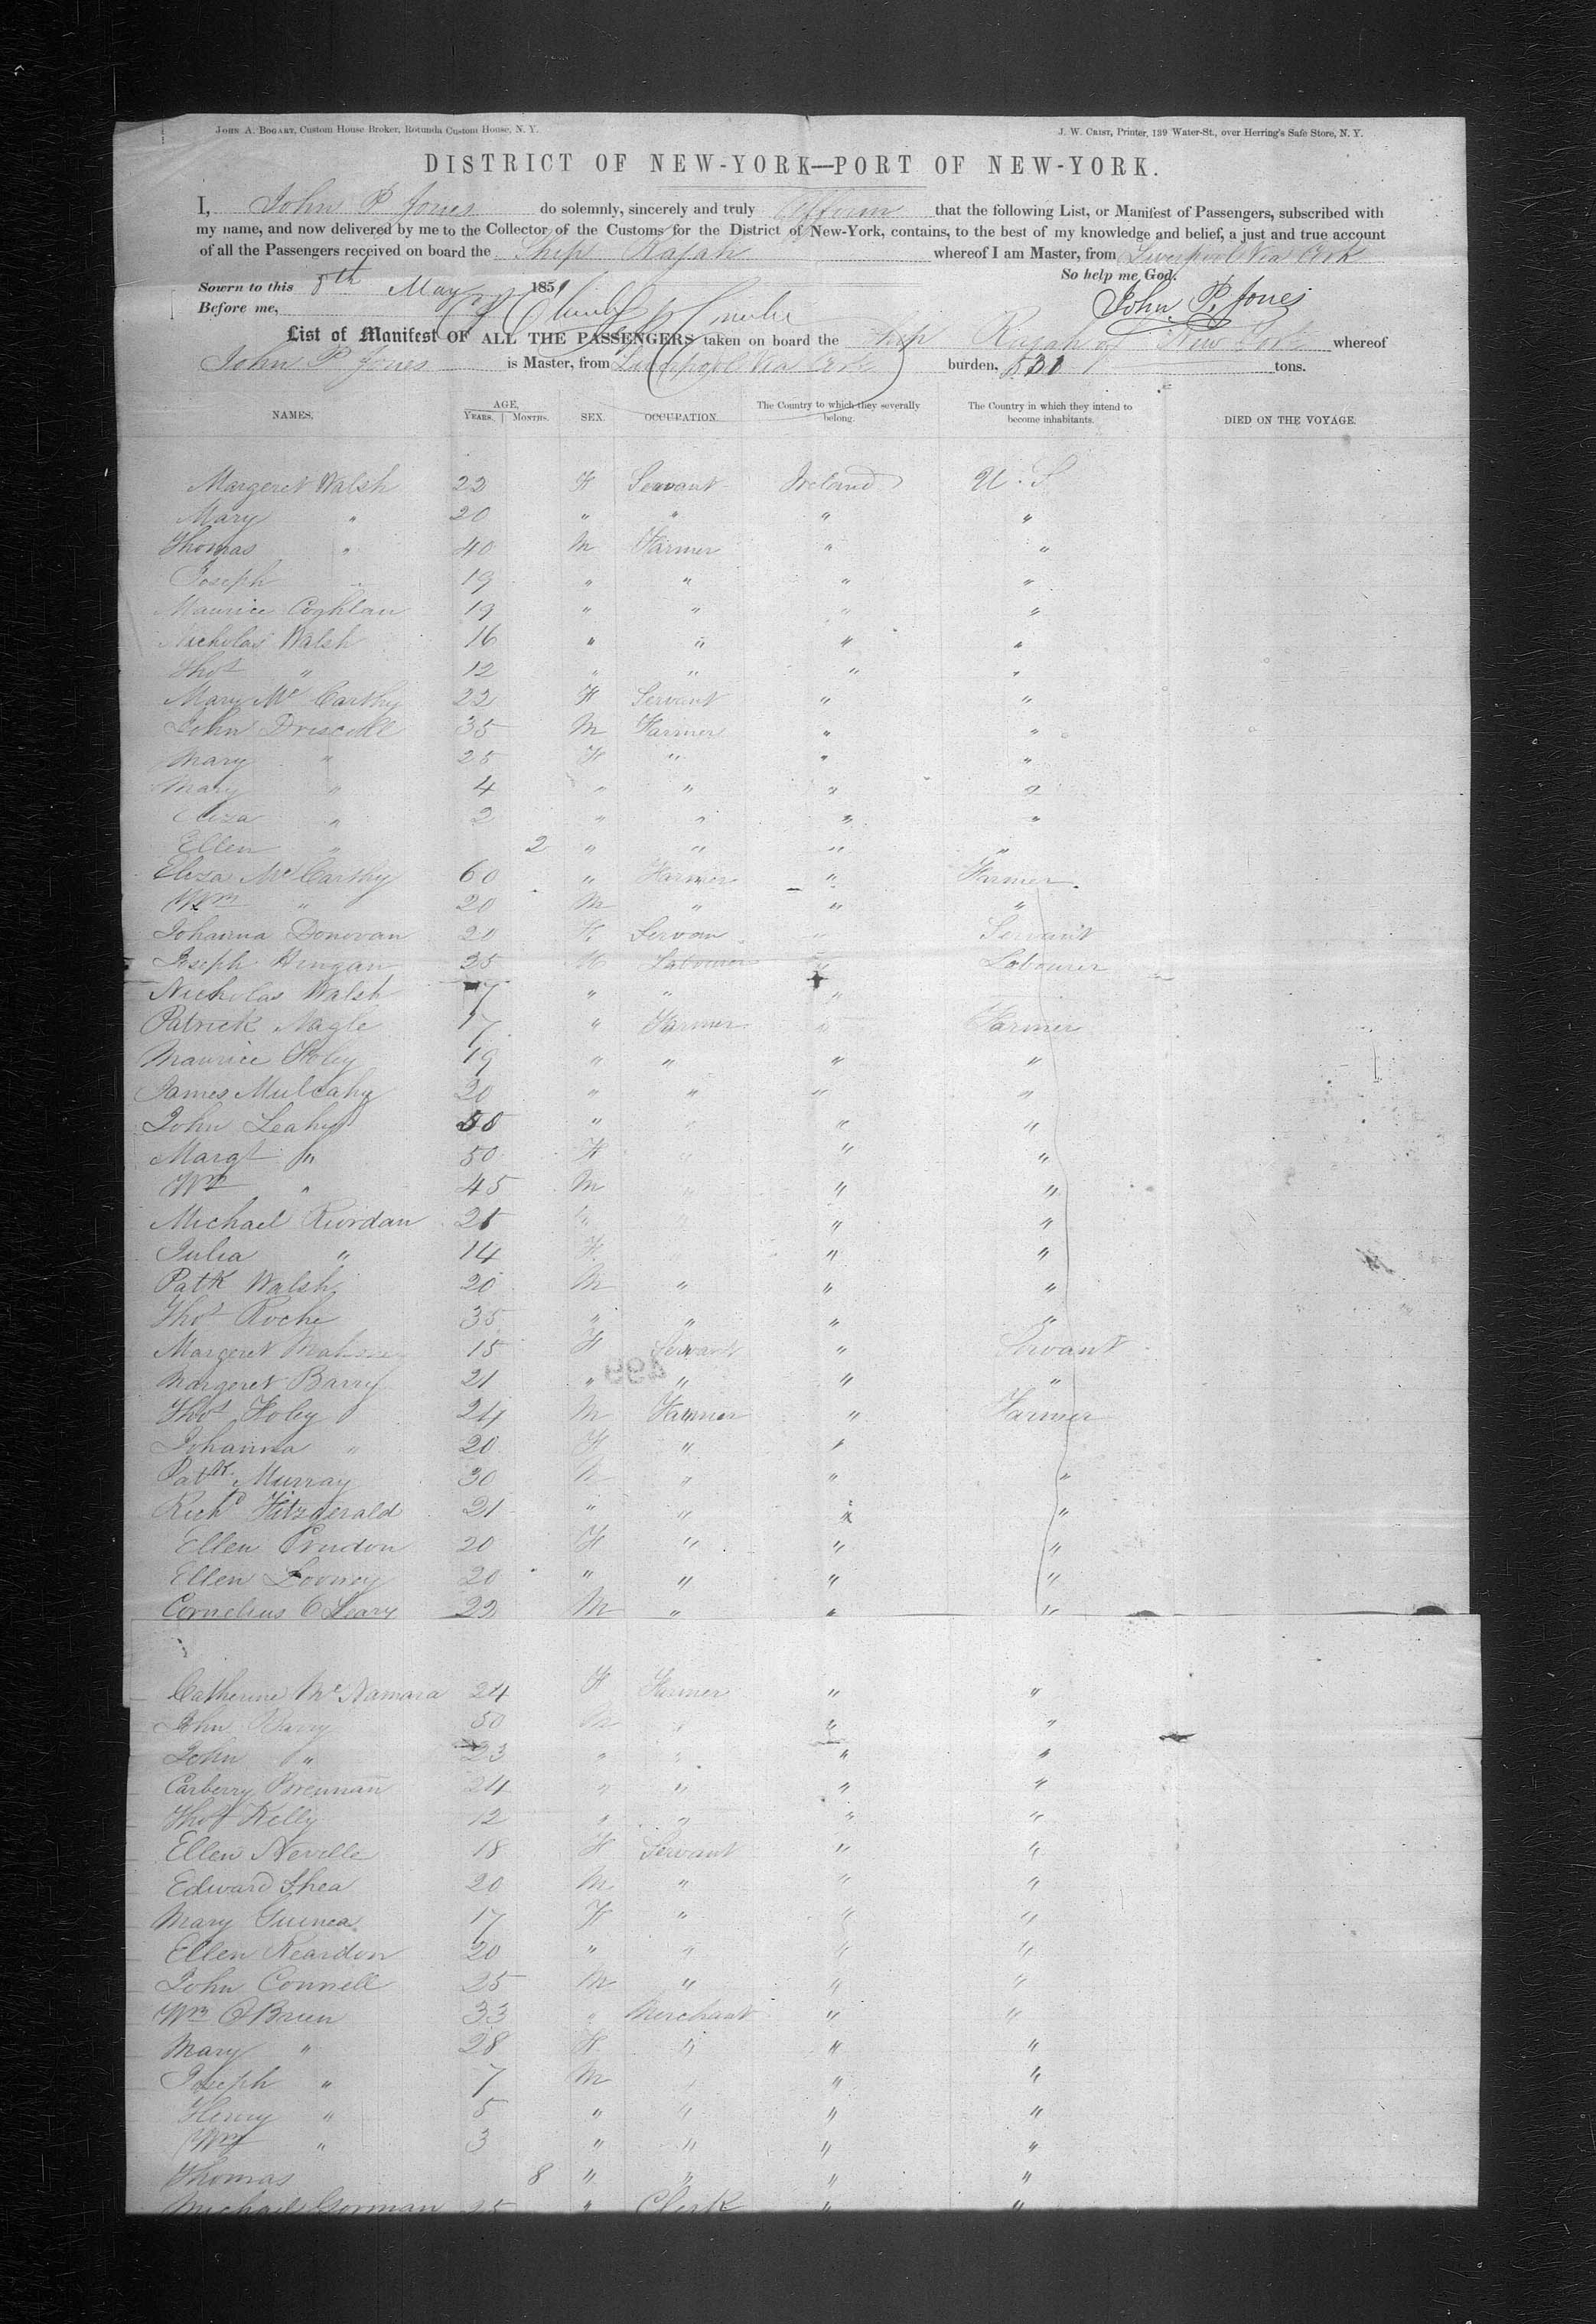 John A. Bogart, Custom House Broker, Rotunda Custom House, N. Y.
J. W. Crist, Printer, 139 Water-St., over Herring's Safe Store, N. Y.
DISTRICT OF NEW-YORK—PORT OF NEW-YORK.
I, John P Jones do solemnly, sincerely and truly affirm that the following List, or Manifest of Passengers, subscribed with
my name, and now delivered by me to the Collector of the Customs for the District of New-York, contains, to the best of my knowledge and belief, a just and true account
of all the Passengers received on board the Ship Rajah whereof I am Master, from Liverpool Via Cork
So help me God.
Sworn to this 8th May 1851
John P. Jones
Before me,
List of Manifest OF ALL THE PASSENGERS taken on board the Ship Rajah of New York whereof
John P Jones is Master, from Liverpool Via Cork burden, 531 tons.
NAMES. AGE, YEARS. MONTHS. SEX. OCCUPATION. The Country to which they severally belong. The Country in which they intend to become inhabitants. DIED ON THE VOYAGE.
Margeret Walsh 22 F Servant Ireland U. S
Mary " 20 " " " "
Thomas " 40 M Farmer " "
Joseph " 19 " " " "
Maurice Coghlan 19 " " " "
Nicholas Walsh 16 " " " "
Thos " 12 " " " "
Mary McCarthy 22 F Servant " "
John Driscoll 35 M Farmer " "
Mary " 25 F " " "
Mary " 4 " " " "
Eliza " 2 " " " "
Ellen " 2 " " " "
Eliza McCarthy 60 " Farmer " Farmer
Wm " 20 M " " "
Johanna Donovan 20 F Servan " Servant
Joseph 25 M Labourer " Labourer
Nicholas Walsh 7 " " "
Patrick Nagle 17 " Farmer " Farmer
Maurice Foley 19 " " " "
James Mulcahy 20 " " " "
John Leahy 55 " " " "
Margt " 50 F " " "
Wm " 45 M " " "
Michael Riordan 25 " " " "
Julia " 14 F " "
Patk Walsh 20 M " " "
Thos Roche 35 " " " "
Margeret 15 F Servant " Servant
499
Margeret Barry 21 " " " "
Thos Foley 24 M Farmer " Farmer
Johanna " 20 F " "
Patk Murray 30 M " " "
Richd Fitzgerald 21 " " " "
Ellen 20 F " " "
Ellen Looney 20 " " " "
Cornelius O Leary 22 M " " "
Catherine McNamara 24 F Farmer " "
John Barry 50 M " " "
John " 23 " " " "
Carberry Brennan 24 " " " "
Thos Kelly 12 " " " "
Ellen Neville 18 F Servant " "
Edward Shea 20 M " " "
Mary Guinea 17 F " " "
Ellen Reardon 20 " " " "
John Connell 25 M " " "
Wm O Brien 33 " Merchant " "
Mary " 28 F " " "
Joseph " 7 M " " "
Henry " 5 " " " "
Wm " 3 " " " "
Thomas 8 " " " "
Michael Gorman 25 " Clerk " "